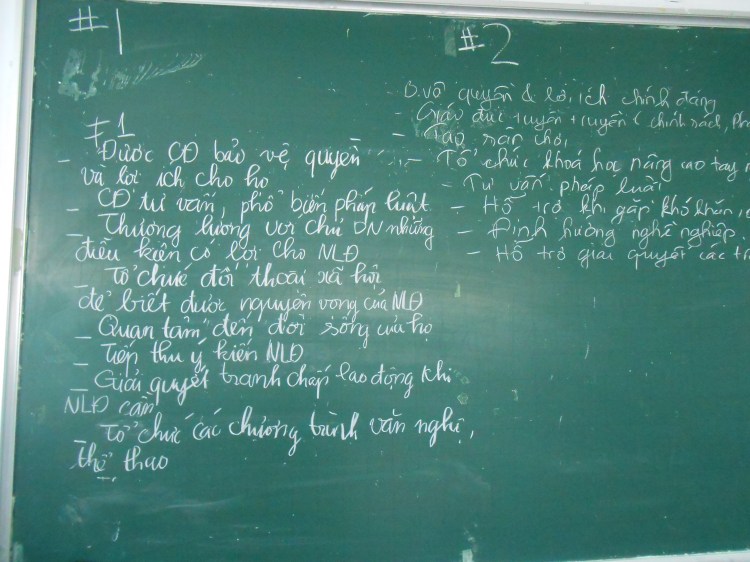 #1
#1
- Được CĐ bảo vệ quyền
và lợi ích cho họ
- CĐ tư vấn, phổ biến pháp luật
- Thương lượng với chủ DN những
điều kiện có lợi cho NLĐ
- Tổ chức đối thoại xã hội
để biết được nguyện vọng của NLĐ
- Quan tâm đến đời sống của họ
- Tiếp thu ý kiến NLĐ
- Giải quyết tranh chấp lao động khi
NLĐ cần
- Tổ chức các chương trình văn nghệ,
thể thao
...
#2
B.vệ quyền & lợi ích chính đáng
- Giáo dục tuyên truyền (chính sách,
- Tạo sân chơi
- Tổ chức khoá học nâng cao tay
- Tư vấn pháp luật
- Hỗ trợ khi gặp khó khăn
- Định hướng nghề nghiệp.
- Hỗ trợ giải quyết các